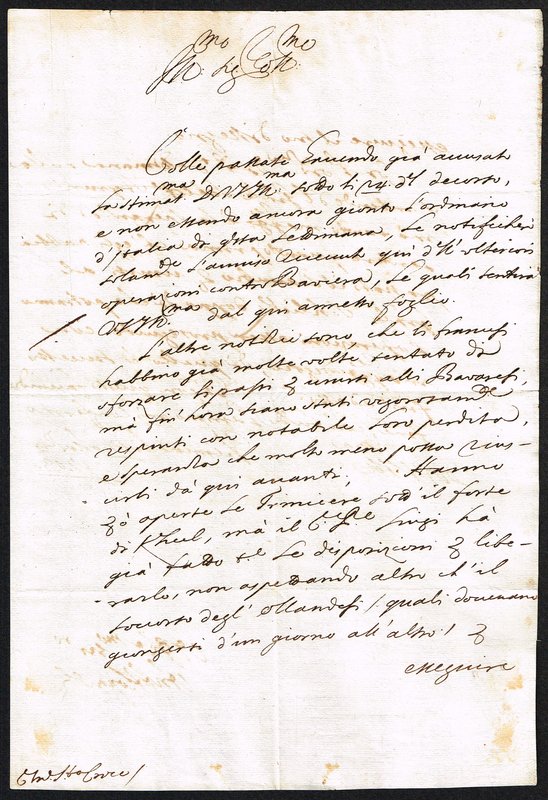 Ill.mo Sig.
Colle passate havendo già accusato
la stimat.ma di V.S.Ill.ma sotto li 24 del decorso,
e non essendo ancora gionto l'ordinario
d'Italia di q.sta settimana, le notificherò
solam.te l'avviso qui dell'ulteriori
operazioni contro Baviera, le quali sentirà
V.S.Ill.ma dal qui annesso foglio.
L'altre notitie sono, che li francesi
habbino già molte volte tentato di
sforzare li passi p unirsi alli Bavaresi,
mà fin'hora siano stati vigorosam.te
respinti con notabile loro perdita,
e speranza che molto meno possa rius-
cirli dà qui avanti; Hanno
p ò aperte le Trinciere sotto il forte
di Kheul, mà il Luigi hà
già fatto t.e le disposizioni p libe-
rarlo, non aspettando altro ch'il
soccorso degl'ollandesi / quali dovevano
giongersi d'un giorno all'altro / p
eseguire
S.ta Croce /